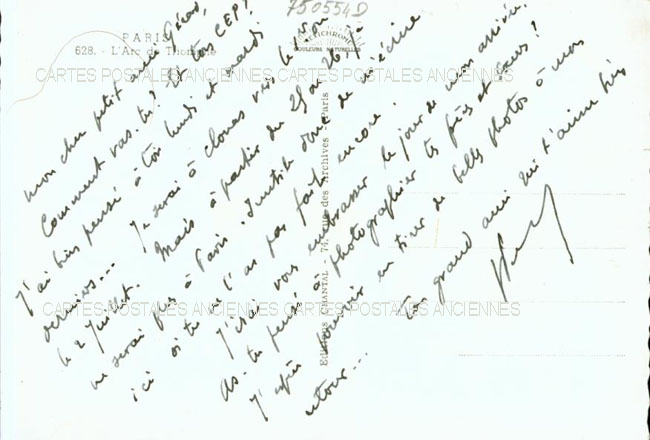 750554D
PARIS
628. - L'Arc de Triomphe
COULEURS NATURELLES
CARTES POSTALES ANCIENNES CARTES POSTALES ANCIENNES
Editions CHANTAL - 74, rue des Archives - Paris
mon cher petit
Comment vas-tu? Et ton CEP?
J'ai bien pensé à toi lundi et mardi
derniers... Je serai à clonas vers le
le 2 Juillet. Mais à partir du 25 au 26 je
ne serai plus à Paris. Inutile donc de m'écrire
ici si tu ne l'as pas fait encore.
J'irai vous embrasser le jour de mon arrivée.
As-tu pensé à photographier tes frères et sœurs?
J'espère pouvoir en tirer de belles photos à mon
retour...
Ton grand ami qui t'aime bien
CARTES POSTALES ANCIENNES CARTES POSTALES ANCIENNES